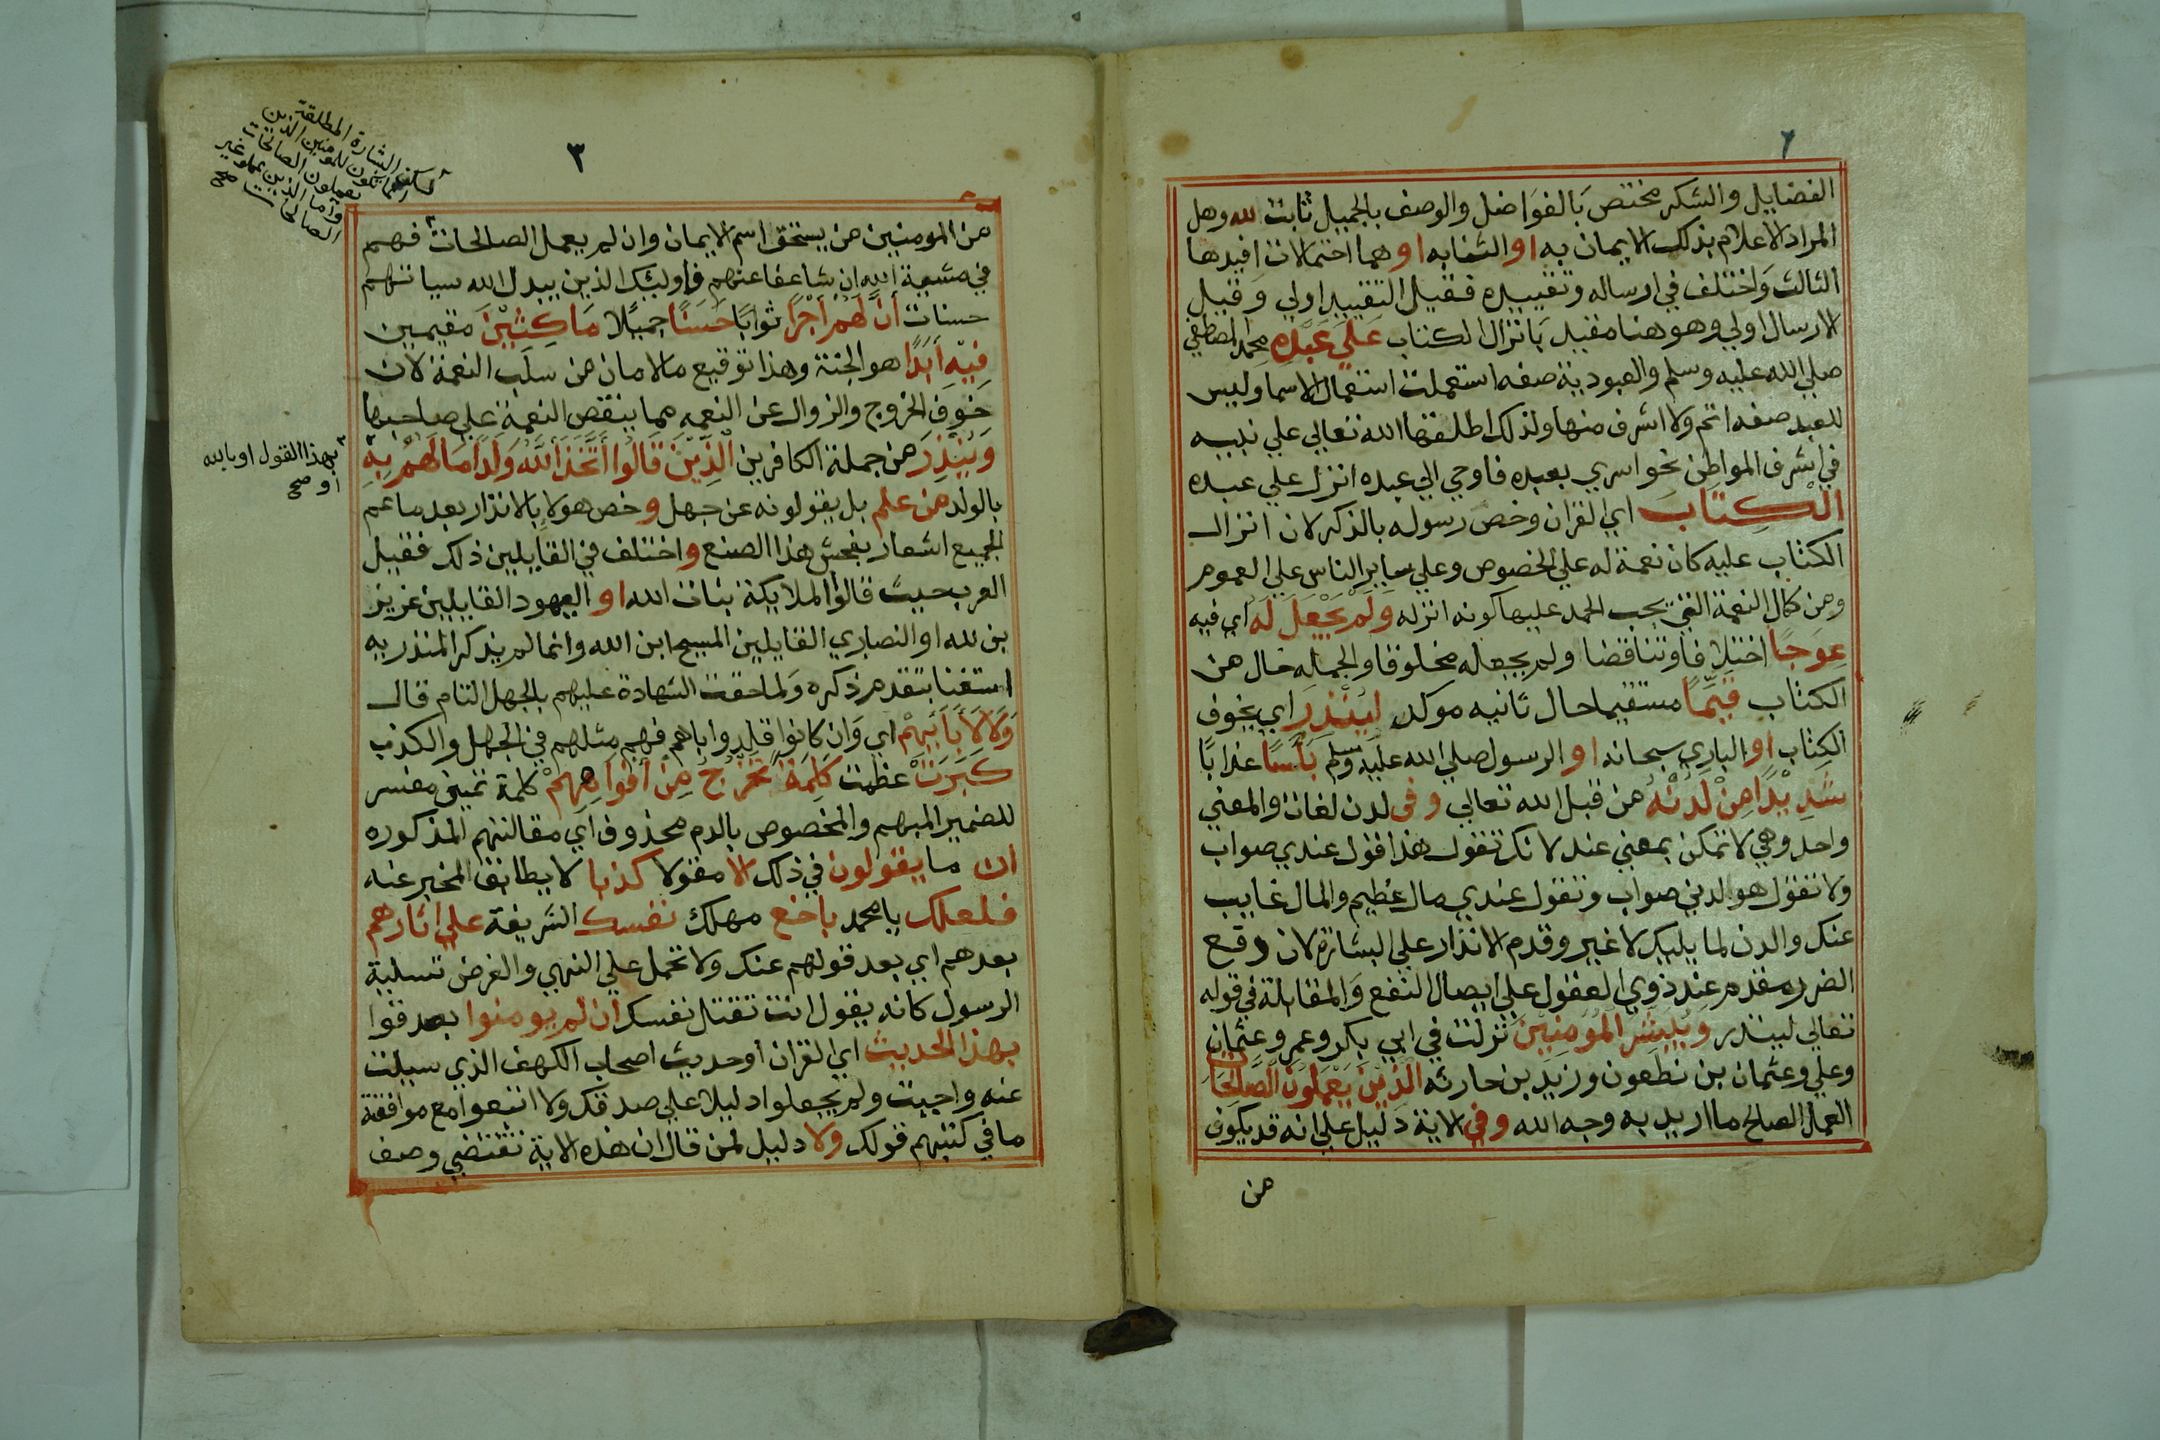 ٢
الفضايل والشكر مختص بَالفوَاضل والوصف بالجميل ثابت لله وهل
المراد الاعلام بذلك الايمان به او الثنابه او هما احتمالات افيدها
الثالث وَاختلف في ارساله وتقييده فقيل التقييد اولي وَقيل
الارسال اولي وهو هنا مقيد بَانزال الكتاب عَلَي عَبْدِهِ محمد المصطفي
صلي الله عليه وسلم والعبودية صفه استعملت استعمال الاسما وليس
للعبد صفه اتم ولا اشرف منها ولذلك اطلقها الله تعالي علي نبيه
في اشرف المواطن نحو اسري بعبده فاوحي الي عبده انزل علي عبده
الْكِتَابَ اي القران وخص رسوله بالذكر لان انزال
الكتاب عليه كان نعمة له علي الخصوص وعلي ساير الناس علي العموم
ومن كمال النعمة التي يجب الحمد عليها كونه انزله وَلَمْ يَجْعَلَ لَهُ اي فيه
عِوَجًا اختلافا وتناقضا ولم يجعله مخلوقا والجمله حال من
الكتاب قَيِّمًا مستقيما حال ثانيه موكد لِيُنْذِرَ اي يخوف
الكتاب او الباري سبحانه او الرسول صلي الله عليه وسلم بَأْسًا عذابًا
شَدِيْدًا مِنْ لَدُنْهُ من قبل الله تعالي وفى لدن لغات والمعني
واحد وهي لا تمكن بمعني عند لانك تقول هذا قول عندي صواب
ولا تقول هو لدني صواب وتقول عندي مال عظيم والمال غايب
عنك والدن لما يليك لا غير وقدم الانذار علي البشارة لان دفع
الضرر مقدم عند ذوي العقول علي ايصال النفع وَالمقابلة في قوله
تعالي لينذر وَيُبَشِّرَ الْمُوْمِنِيْنَ نزلت في ابي بكر وعمر وعثمان
وعلي وعثمان بن نطعون وزيد بن حارثه الَّذِيْنَ يَعْمَلُوْنَ الصَّالِحَاتِ
العمل الصالح ما اريد به وجه الله وفي الاية دَليل علي انه قد يكون
من
٣
من المومنين من يستحق اسم الايمان وان لم يعمل الصالحات فهم
في مشية الله ان شا عفا عنهم فاوليك الذين يبدل الله سياتهم
حسنات أَنَّ لَهُمْ أَجْرًا ثوابًا حَسَنًا جميلا مَاكِثِيْنَ مقيمين
فِيْهِ أَبَدًا هو الجنة وهذا توقيع مالامان من سلَب النعمة لان
خوف الخروج والزوال عن النعم مما ينقص النعمة علي صاحبها
وَيُنْذِرَ من جملة الكافرين الَّذِيْنَ قَالُوا اتَّخَذَ اللَّهُ وَلَدًا مَا لَهُمْ بِهِ
بالولد من علم بل يقولونه عن جهل وخص هولا بالانذار بعد ما عم
الجميع اشعار بفحش هذا الصنع واختلف في القايلين ذلك فقيل
العرب حيث قالوا الملايكة بنات الله او اليهود القايلين عزيز
بن لله او النصاري القايلين المسيح ابن الله وانما لم يذكر المنذر به
استغنا بتقدم ذكره وَلما حقت الشهادة عليهم بالجهل التام قال
وَلَا لِأَبَآيِهِمْ اي وَان كانوا قلدوا اباهم فهم مثلهم في الجهل والكذب
كَبُرَتْ عظمت كَلِمَةً تَخْرُجُ مِنْ أَفْوَاهِهِمْ كلمة تمييز مفسر
للضمير المبهم والمخصوص بالدم محذوف اي مقالتهم المذكوره
ان ما يقولون في ذلك الا مقولا كذبا لا يطابق المخبر عنه
فلعلك يا محمد باخع مهلك نفسك الشريفة علي اثارهم
بعدهم اي بعد قولهم عنك ولا تحمل علي النهي والغرض تسلية
الرسول كانه يقول انت تقتل نفسك ان لم يومنوا يصدقوا
بهذا الحديث اي القران او حديث اصحاب الكهف الذي سيلت
عنه واجيت ولم يجعلوا دليلا علي صدقك ولا اتبعوا مع موافقة
ما في كتبهم قولك ولا دليل لمن قال ان هذه الاية تقتضي وصف
البشارة المطلقة
انما تكون للمومنين الذين
يعملون الصالحات
واما الذين عملو غير
الصالحات صح
بهذا القول او بالله
او صح